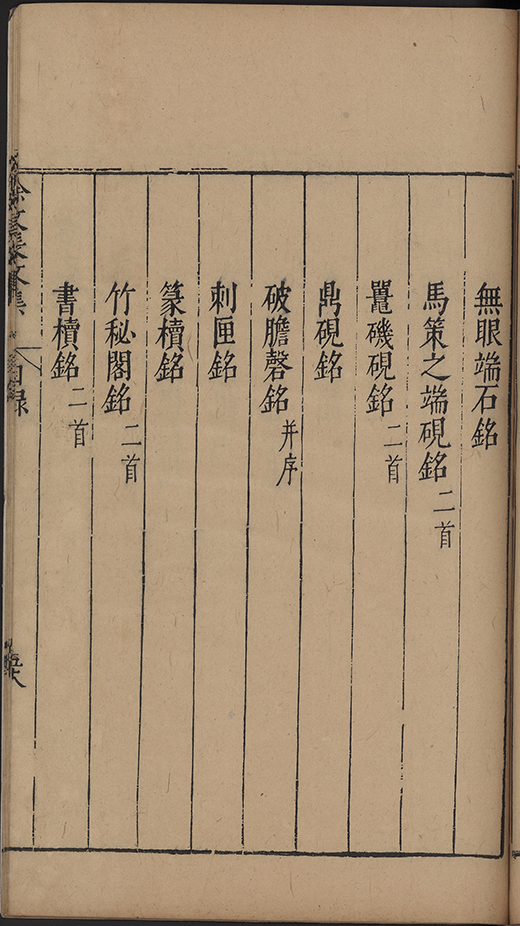 無眼端石銘
馬策之端硯銘二首
鼍磯硯銘二首
鼎硯銘
破膽磬銘并序
刺匣銘
篆櫝銘
竹秘閣銘二首
書櫝銘二首
目録